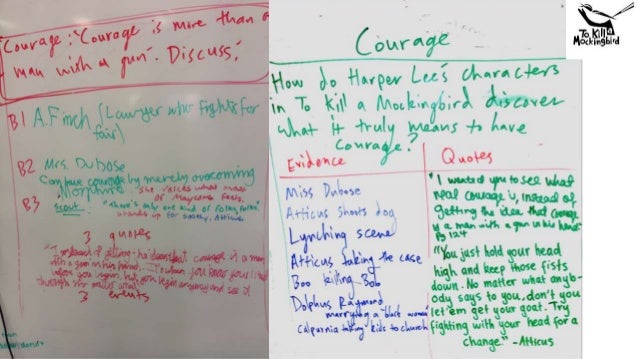 Courage: "Courage is more than a
man with a gun". Discuss.
B1 A. Finch (Lawyer who fights for
fair)
B2 Mrs. Dubose
courage by merely overcoming
Morphine
B3 Scout. She voices what many
of Maycomb
"There's only one kind of folks, folks."
stands up for society, Atticus
3 quotes
"Instead of getting the idea that courage is a man
with a gun in his hand.
you begin, but you begin anyway and see it
through no matter what"
3 events
Courage
How do Harper Lee's characters
in To Kill a Mockingbird discover
what it truly means to have
courage?
Evidence
Miss Dubose
Atticus shoots dog
Lynching scene
Atticus taking the case
Boo killing Bob
Dolphus Raymond
marrying a "black woman"
Calpurnia taking kids to church
Quotes
"I wanted you to see what
real courage is, instead of
getting the idea that courage
is a man with a gun in his hand."
"You just hold your head
high and keep those fists
down. No matter what anyb-
ody says to you, don't you
let 'em get your goat. Try
fighting with your head for a
change." -Atticus
To Kill a
Mockingbird